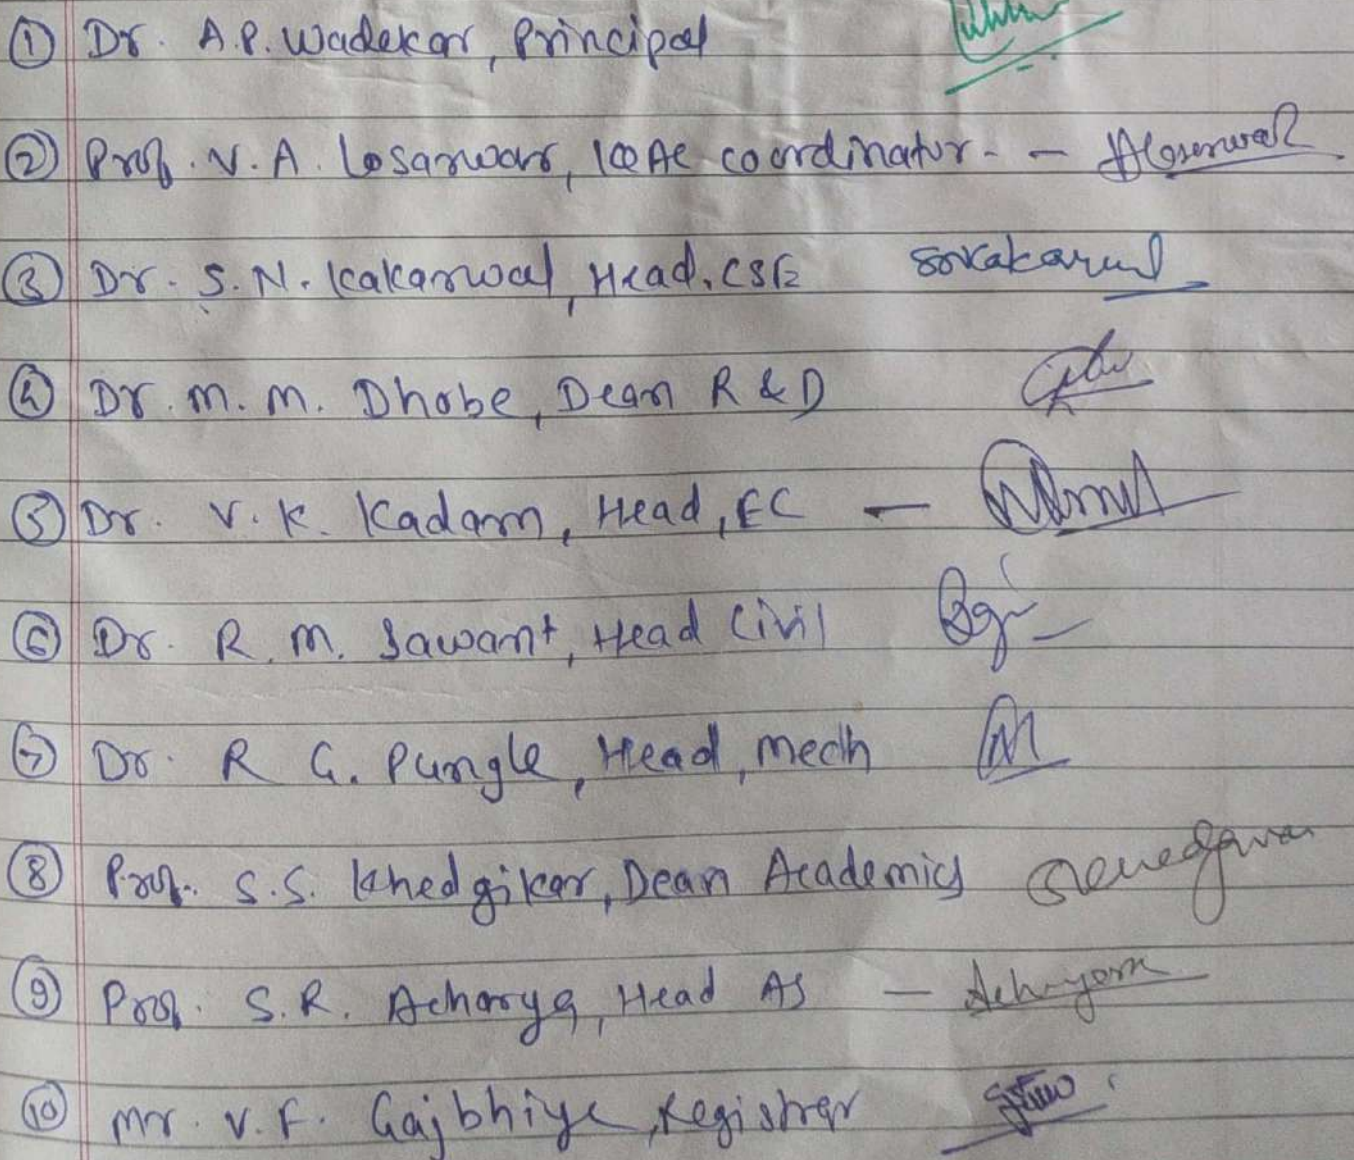 ① Dr. A.P. Wadekar, Principal
② Prof. V. A. Losarwar, IQAC coordinator - -
③ Dr. S. N. Kakarwal, Head, CSE
④ Dr. M. M. Dhobe, Dean R & D
⑤ Dr. V. K. Kadam, Head, EC -
⑥ Dr. R. M. Sawant, Head Civil
⑦ Dr. R G. Pungle, Head, Mech
⑧ Prof. S.S. Khedgikar, Dean Academics
⑨ Prof. S.R. Acharya, Head AS -
⑩ Mr. V. F. Gajbhiye, Registrar